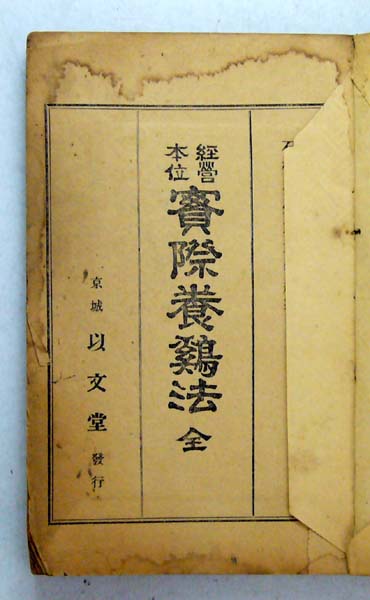 經營
本位
實際養鷄法 全
京城 以文堂 發行